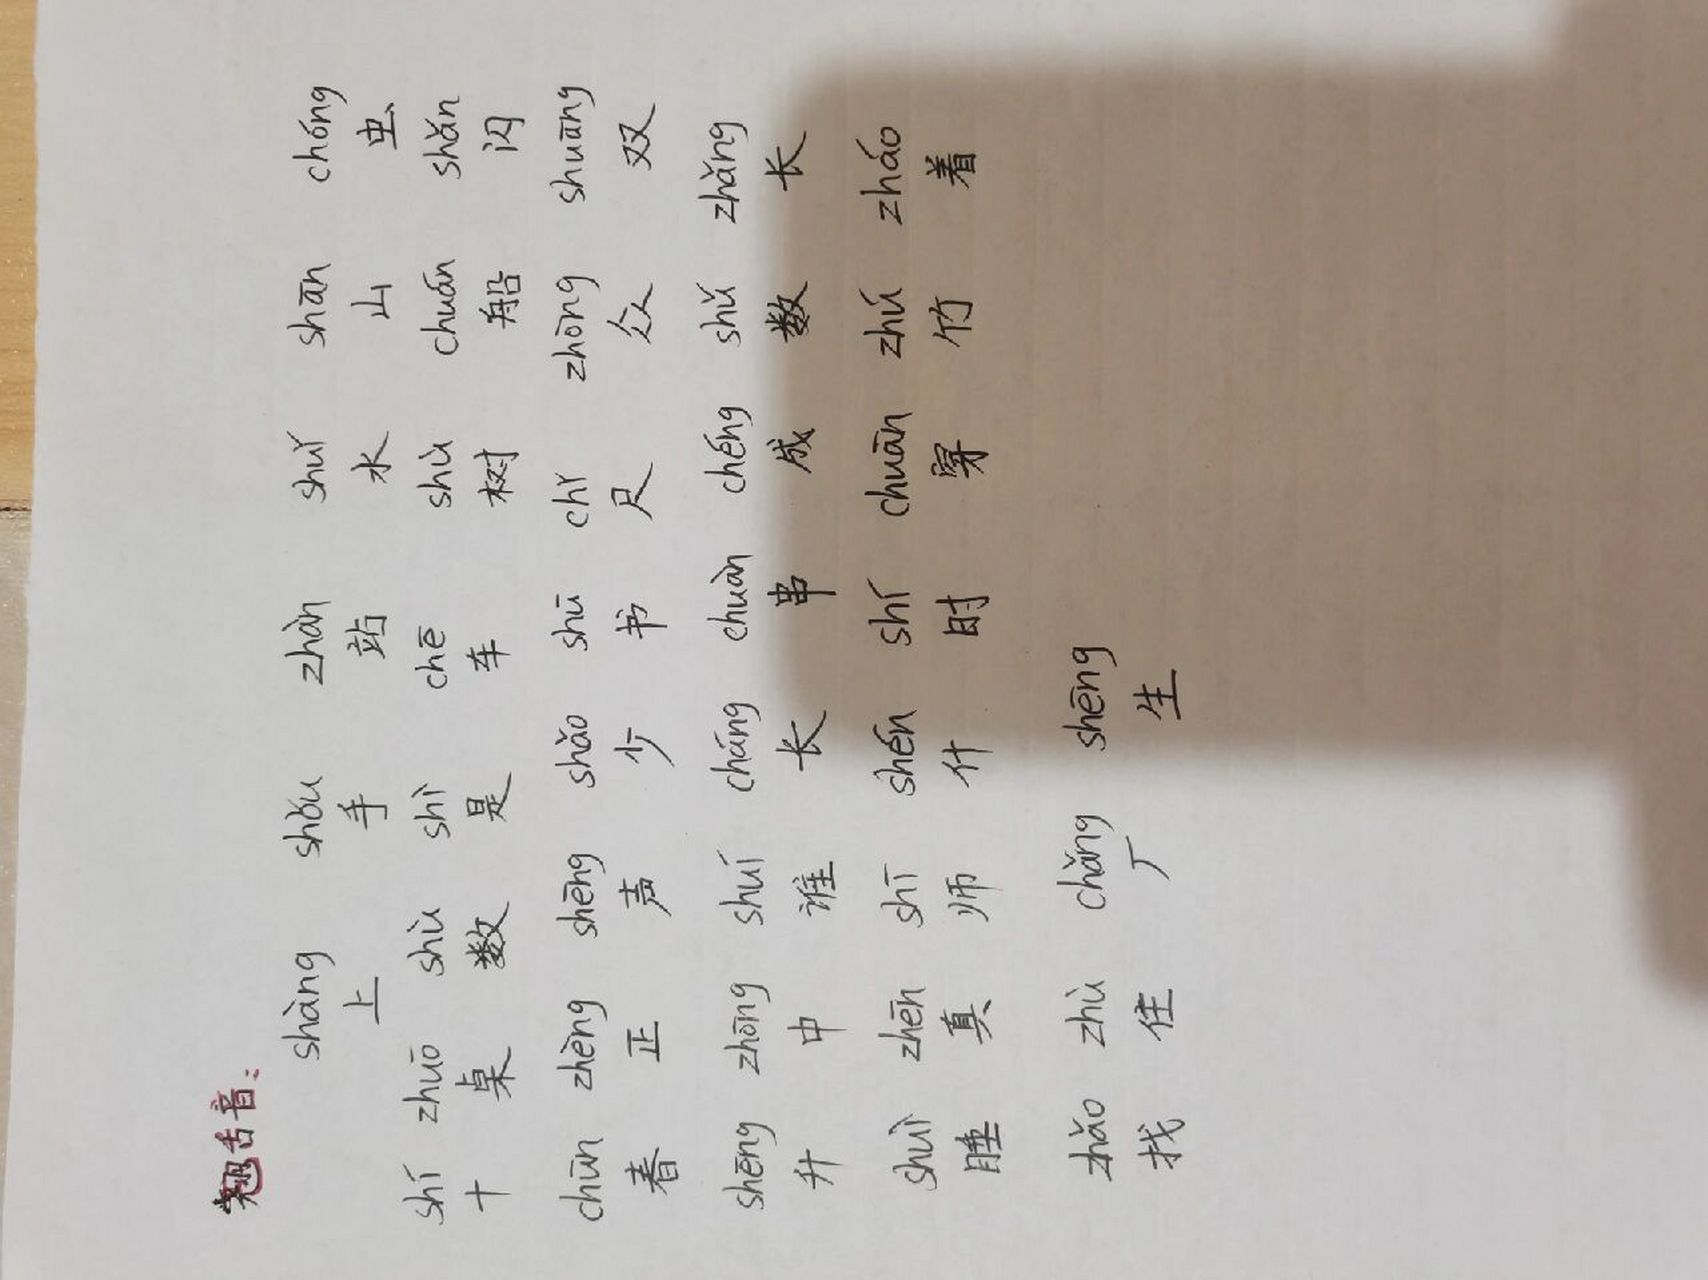 翘舌音:
shàng shǒu zhàn shuǐ shān chóng
上 手 站 水 山 虫
shí zhuō shù shì chē shù chuán shǎn
十 桌 数 是 车 树 船 闪
chūn zhèng shēng shǎo shū chǐ zhòng shuāng
春 正 声 少 书 尺 众 双
shēng zhōng shuí cháng chuàn chéng shǔ zhǎng
升 中 谁 长 串 成 数 长
shuì zhēn shī shén shí chuān zhú zháo
睡 真 师 什 时 穿 竹 着
zhǎo zhù chǎng shēng
找 住 厂 生